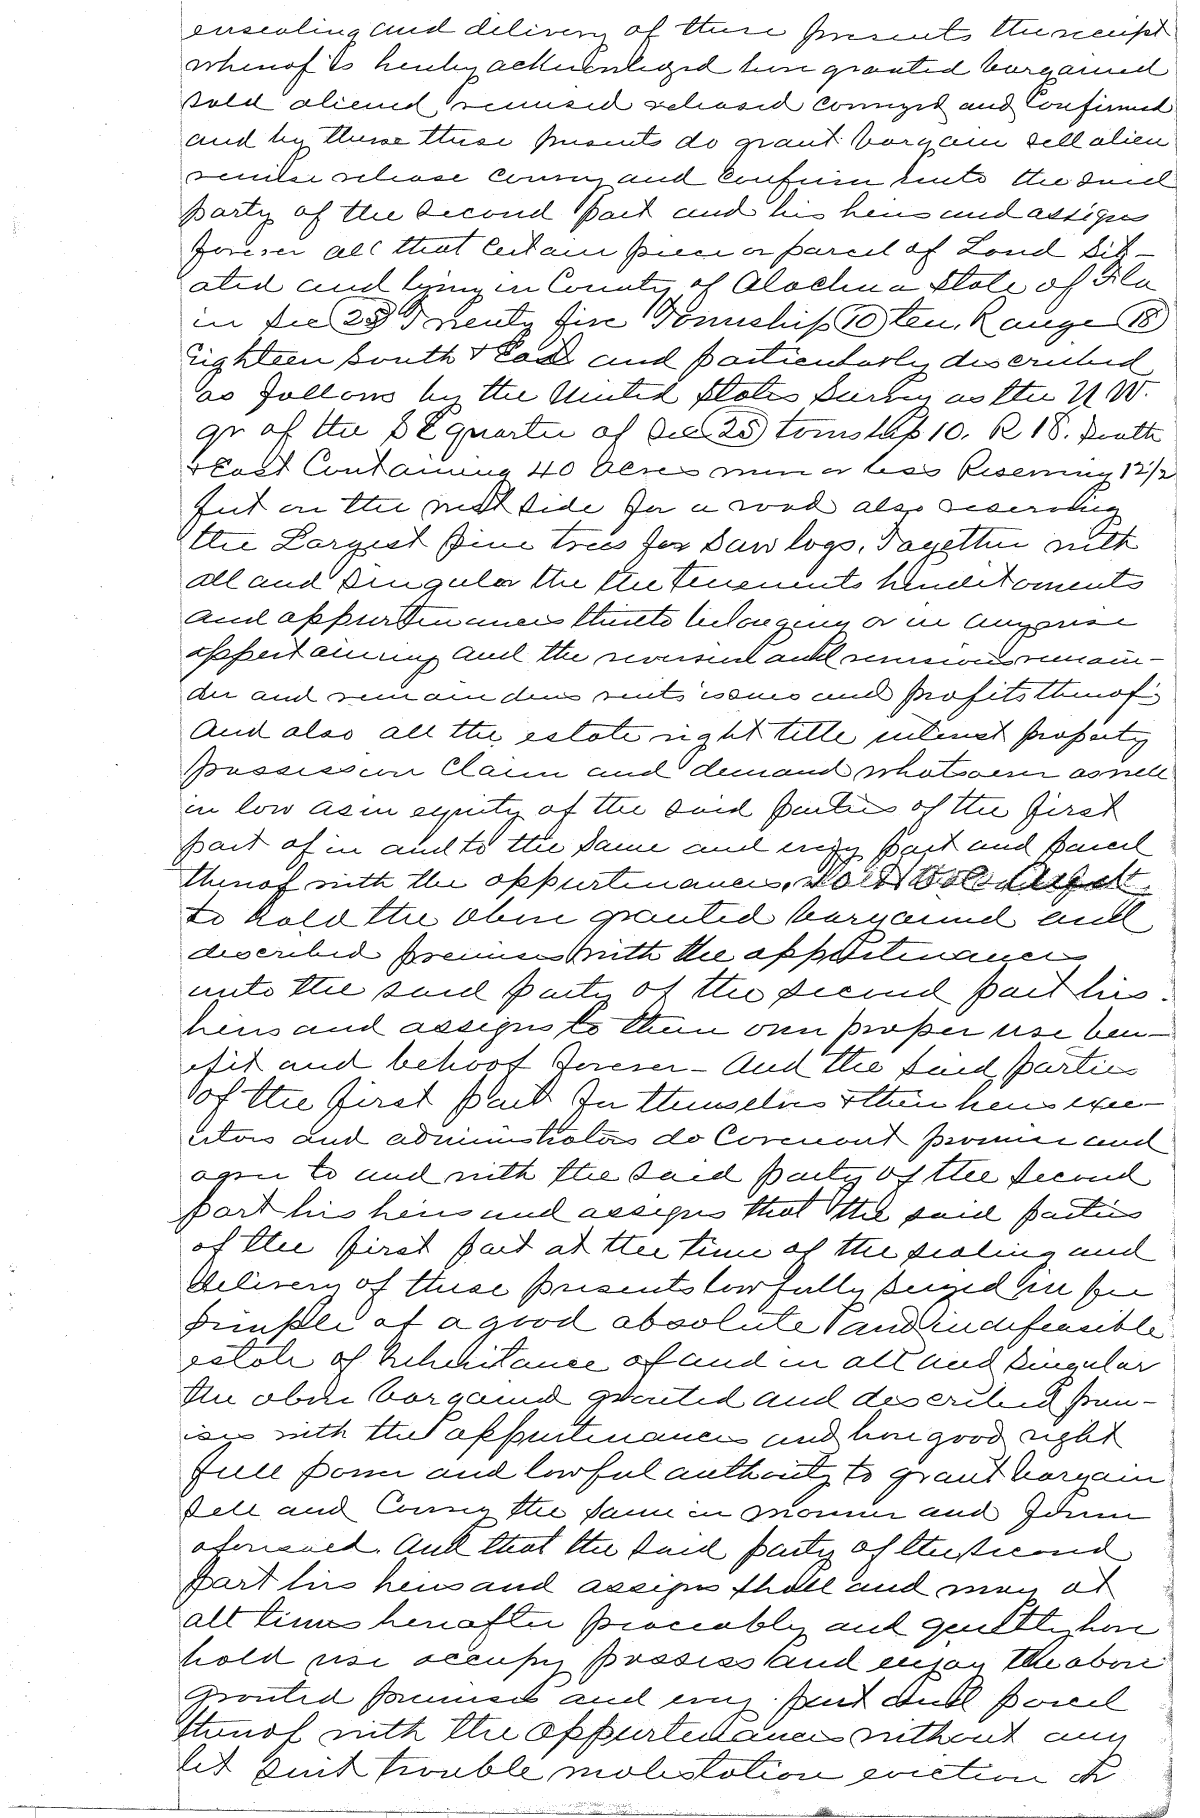 ensealing and delivery of these presents the receipt
whereof is hereby acknowledged have granted bargained
sold aliened remised released conveyed and Confirmed
and by these these presents do grant bargain sell alien
remise release convey and Confirm unto the said
party of the Second part and his heirs and assigns
forever all that Certain piece or parcel of Land Sit-
ated and lying in County of Alachua State of Fla
in Sec (25) Twenty five Township (10) ten, Range (18)
eighteen South & East and particularly described
as follows by the United States Survey as the N W.
qr of the S E quarter of Sec (25) township 10. R 18. South
& East Containing 40 Acres more or less Reserving 12 1/2
feet on the west side for a road also reserving
the Largest pine trees for Saw logs. Together with
all and Singular the the tenements hereditaments
and appurtenances thereto belonging or in anywise
appertaining and the reversion and revisions remain-
der and remainders rents issues and profits thereof
And also all the estate right title interest property
possession Claim and demand whatsoever as well
in law as in equity of the said parties of the first
part of in and to the same and every part and parcel
thereof with the appurtenances.
to hold the above granted bargained and
described premises with the appurtenances
unto the said party of the second part his
heirs and assigns to their own proper use ben-
efit and behoof forever - And the said parties
of the first part for themselves & their heirs exec-
utors and administrators do Covenant promise and
agree to and with the said party of the second
part his heirs and assigns that the said parties
of the first part at the time of the sealing and
delivery of these presents lawfully seized in fee
simple of a good absolute and indefeasible
estate of Inheritance of and in all and Singular
the above bargained granted and described prem-
ises with the appurtenances and have good right
full power and lawful authority to grant bargain
sell and Convey the same in manner and form
aforesaid. And that the said party of the second
part his heirs and assigns shall and may at
all times hereafter peaceably and quietly have
hold use occupy possess and enjoy the above
granted premises and every part and parcel
thereof with the appurtenances without any
let suit trouble molestation eviction or